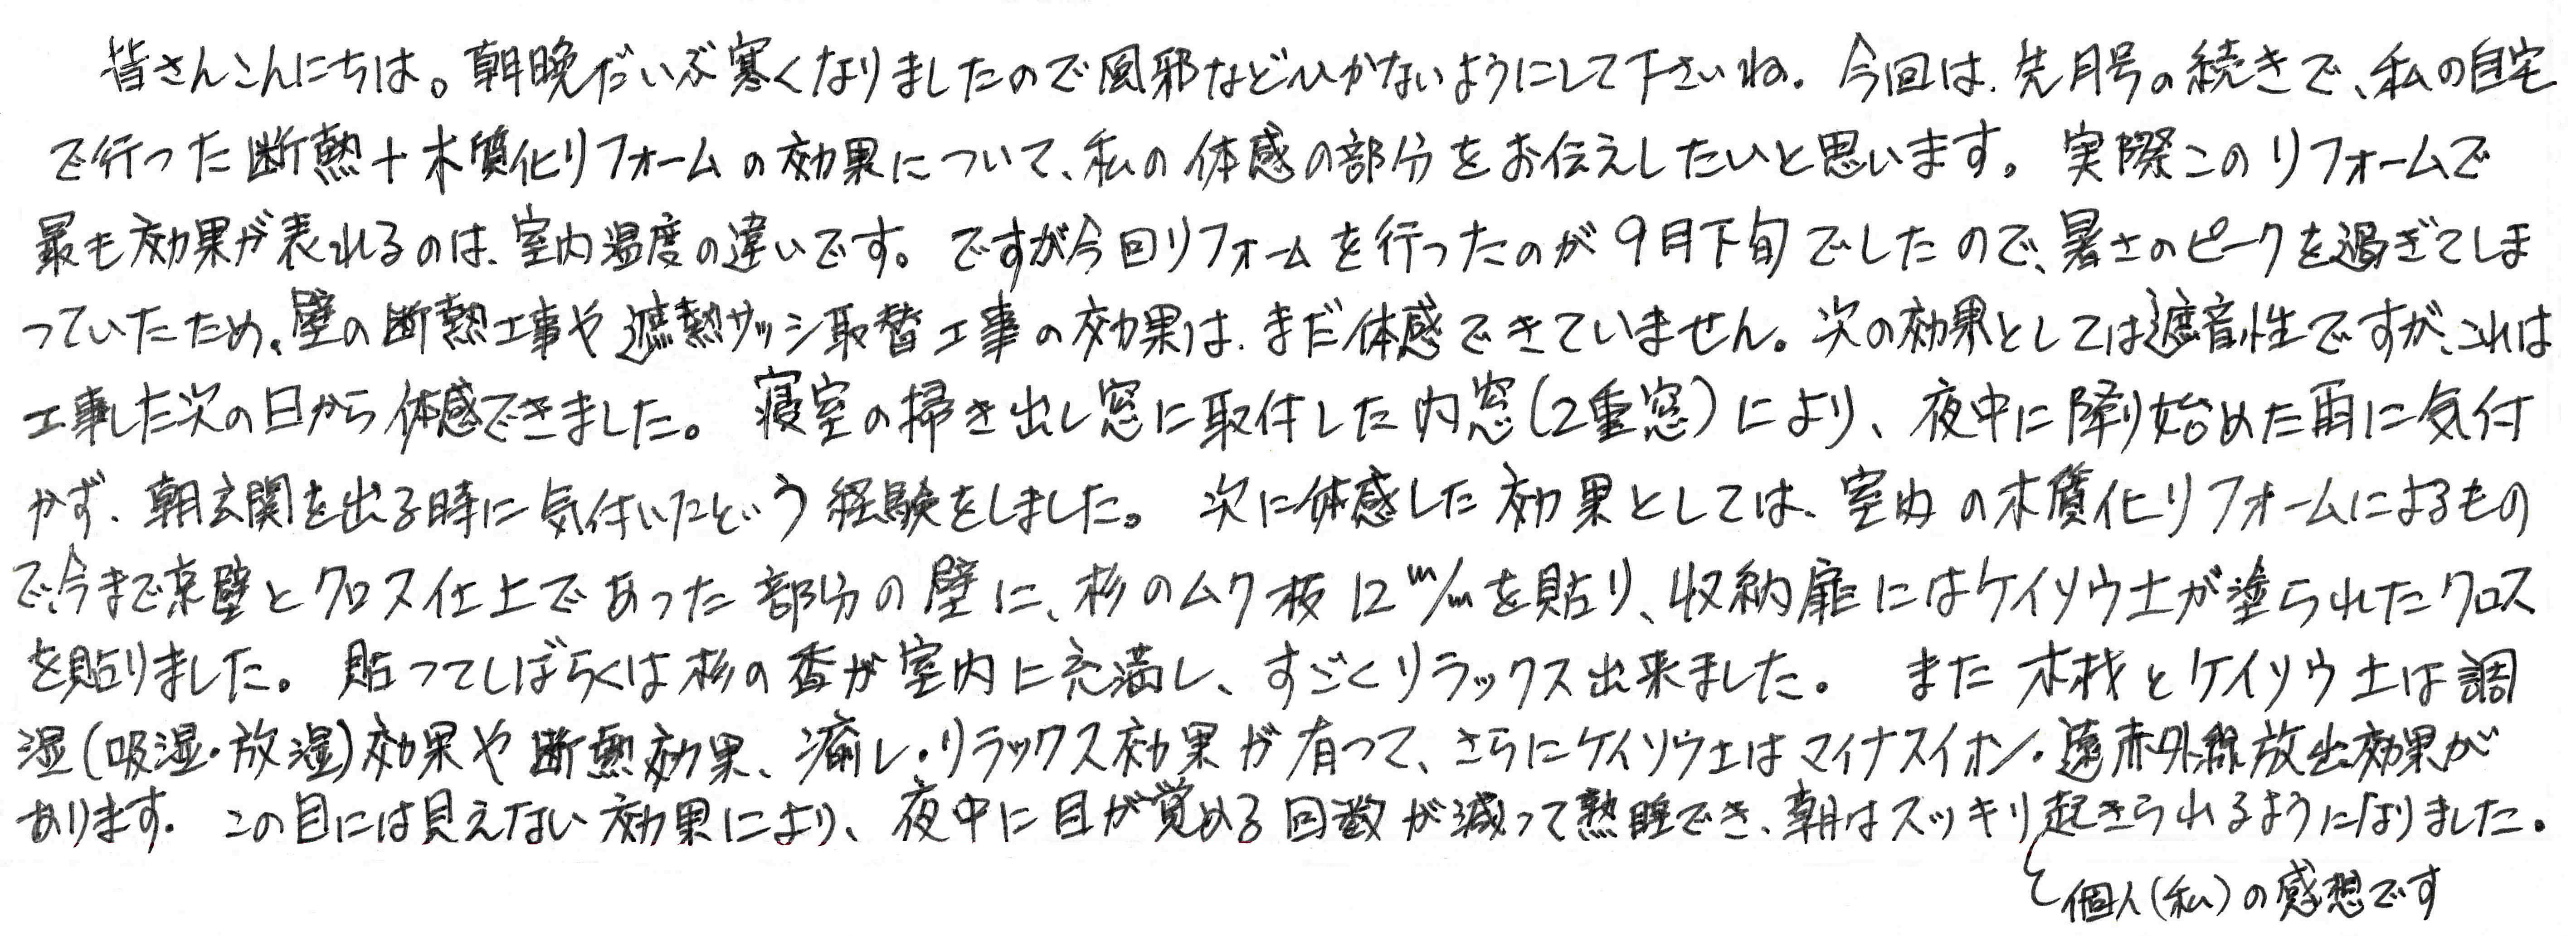 皆さんこんにちは。朝晩だいぶ寒くなりましたので風邪などひかないようにして下さいね。今回は、先月号の続きで、私の自宅
で行った断熱＋木質化リフォームの効果について、私の体感の部分をお伝えしたいと思います。実際このリフォームで
最も効果が表れるのは、室内温度の違いです。ですが今回リフォームを行ったのが9月下旬でしたので、暑さのピークを過ぎてしま
っていたため、壁の断熱工事や遮熱サッシ取替工事の効果は、まだ体感できていません。次の効果としては遮音性ですが、これは
工事した次の日から体感できました。寝室の掃き出し窓に取付した内窓(2重窓)により、夜中に降り始めた雨に気付
かず、朝玄関を出る時に気付いたという経験をしました。次に体感した効果としては、室内の木質化リフォームによるもの
で、今まで京壁とクロス仕上であった部分の壁に、杉のムク板12m/mを貼り、収納扉にはケイソウ土が塗られたクロス
を貼りました。貼ってしばらくは杉の香が室内に充満し、すごくリラックス出来ました。また木材とケイソウ土は調
湿(吸湿・放湿)効果や断熱効果、癒し・リラックス効果が有って、さらにケイソウ土はマイナスイオン・遠赤外線放出効果が
あります。この目には見えない効果により、夜中に目が覚める回数が減って熟睡でき、朝はスッキリ起きられるようになりました。
個人(私)の感想です